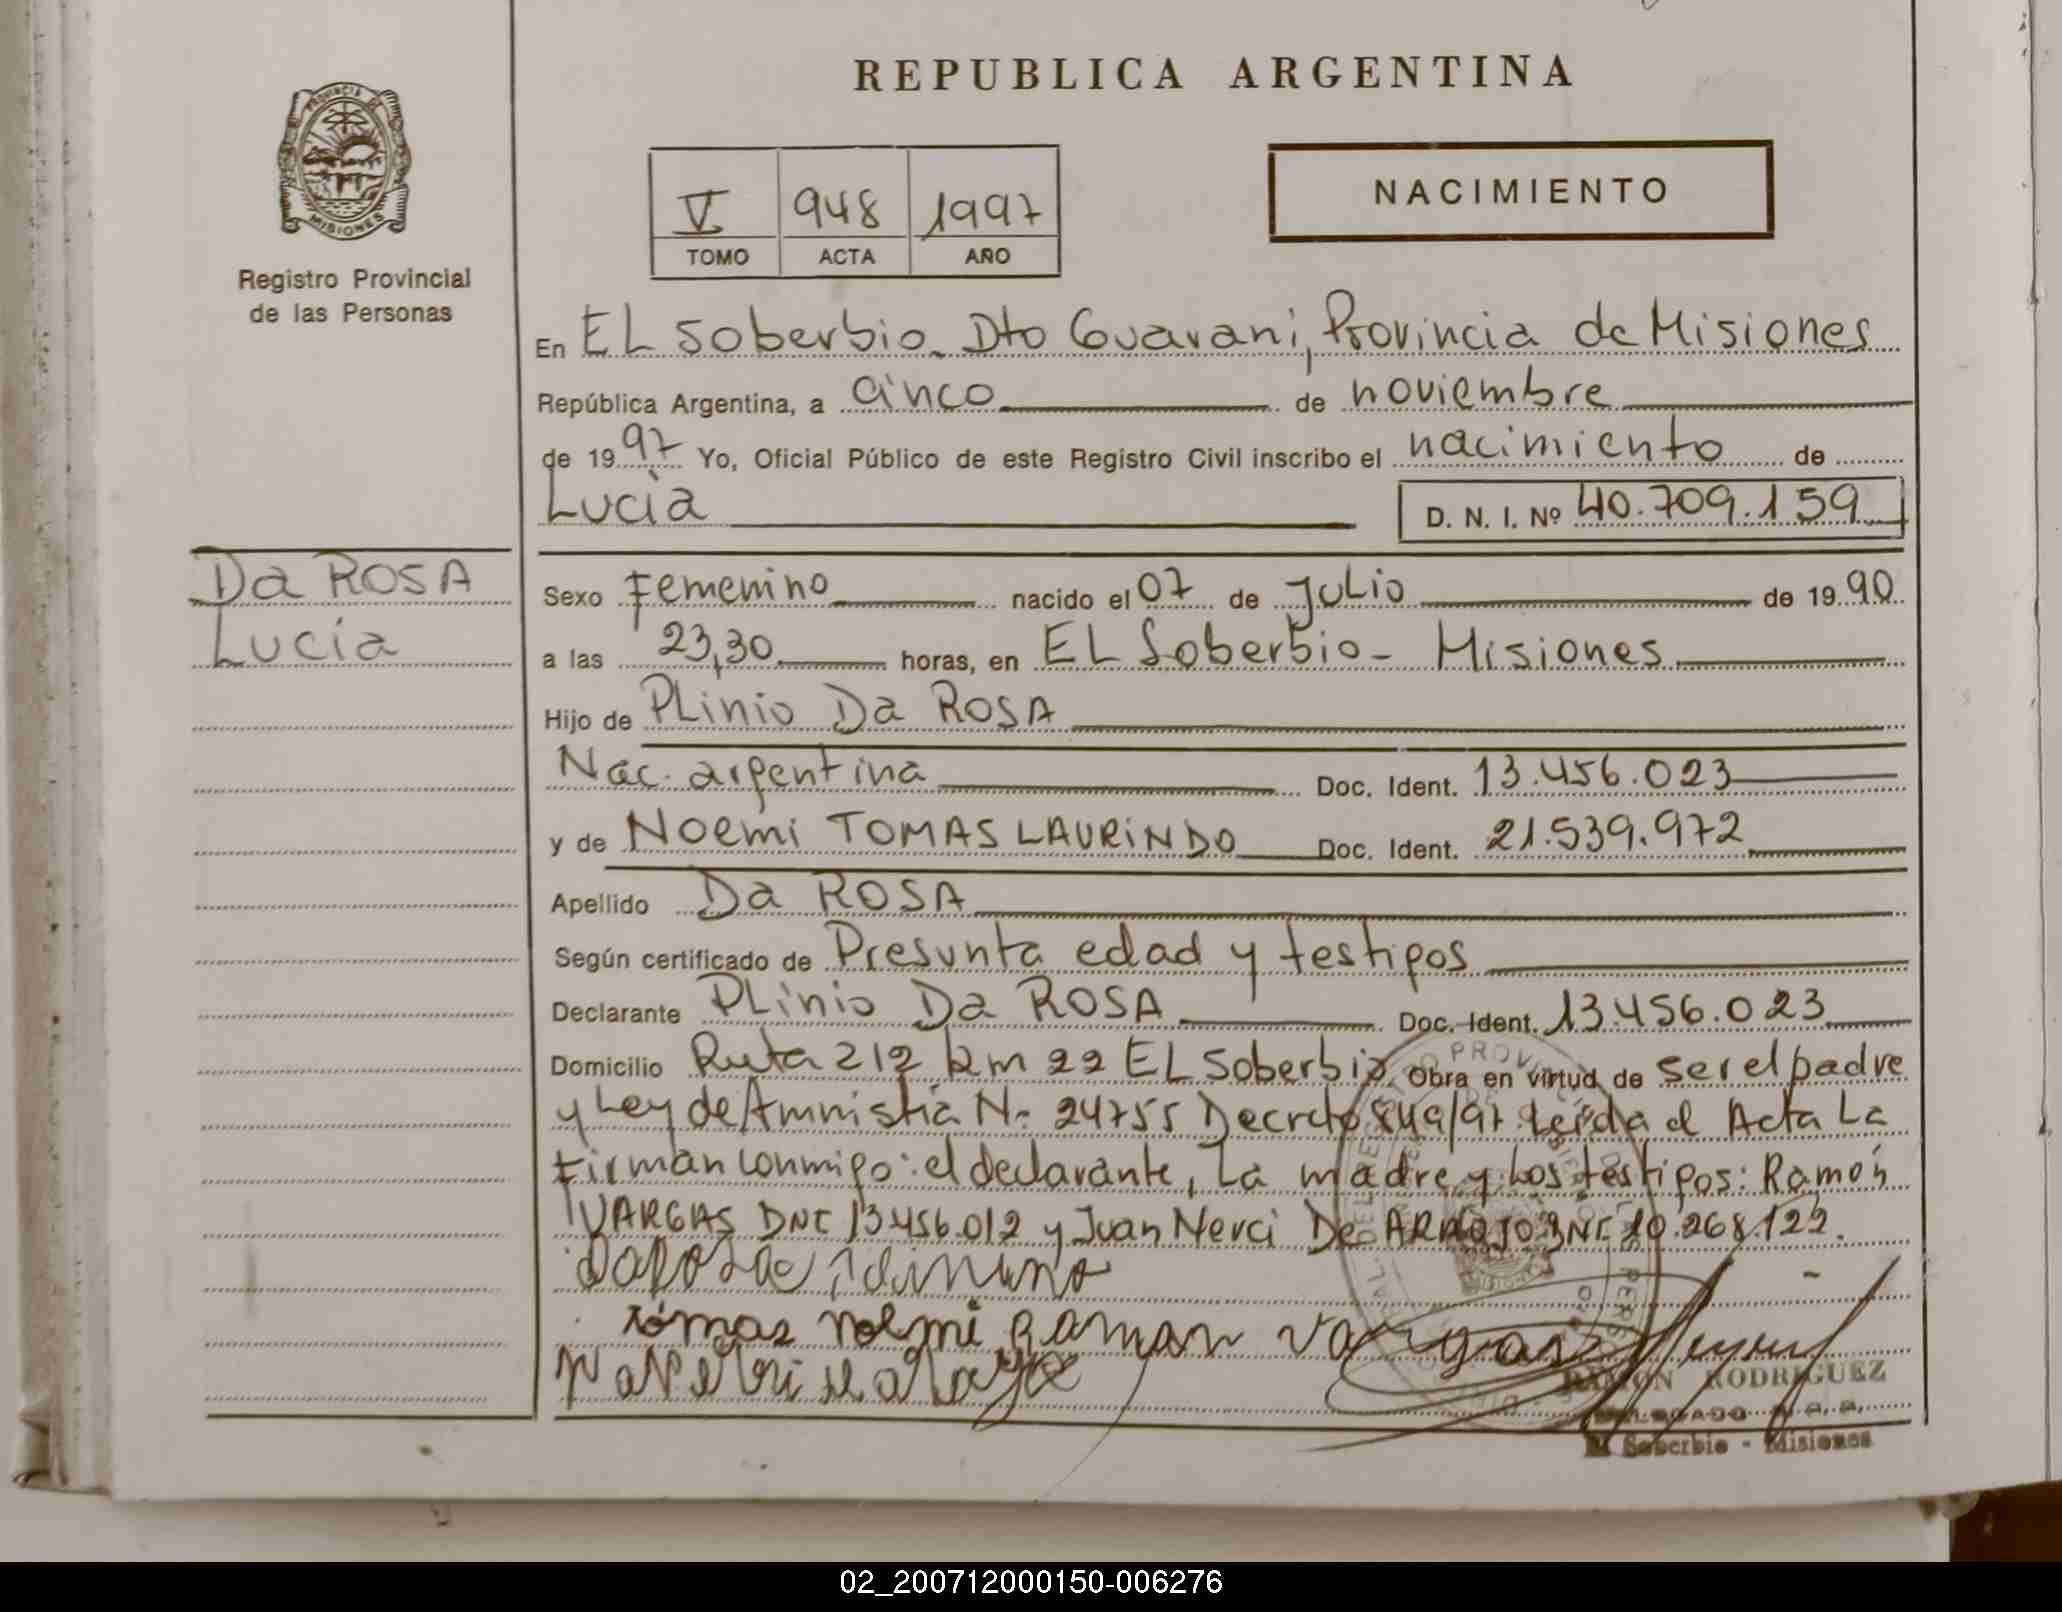 REPUBLICA ARGENTINA
PROVINCIA DE
MISIONES
Registro Provincial
de las Personas
V 948 1997
TOMO ACTA AÑO
NACIMIENTO
En EL Soberbio. Dto Guarani, Provincia de Misiones
República Argentina, a cinco de noviembre
de 19 97 Yo, Oficial Público de este Registro Civil inscribo el nacimiento de
Lucia D. N. I. Nº 40.709.159
Da ROSA
Lucía
Sexo Femenino nacido el 07 de Julio de 19 90
a las 23,30 horas, en EL Soberbio - Misiones
Hijo de PLinio Da ROSA
Nac. argentina Doc. Ident. 13.456.023
y de Noemi TOMAS LAURINDO Doc. Ident. 21.539.972
Apellido Da ROSA
Según certificado de Presunta edad y testigos
Declarante PLinio Da ROSA Doc. Ident. 13.456.023
Domicilio Ruta 212 km 22 EL Soberbio Obra en virtud de ser el padre
y Ley de Amnistia N: 24755 Decreto 849/97 Leída el Acta La
firman conmigo: el declarante, La madre y Los testigos: Ramón
VARGAS DNI 13.456.012 y Juan Nerci De ARAOJO DNI 20.268.122.
tomas noemi Raman Vargas
RAMON RODRIGUEZ
DELEGADO R. P. P.
El Soberbio - Misiones
02_200712000150-006276